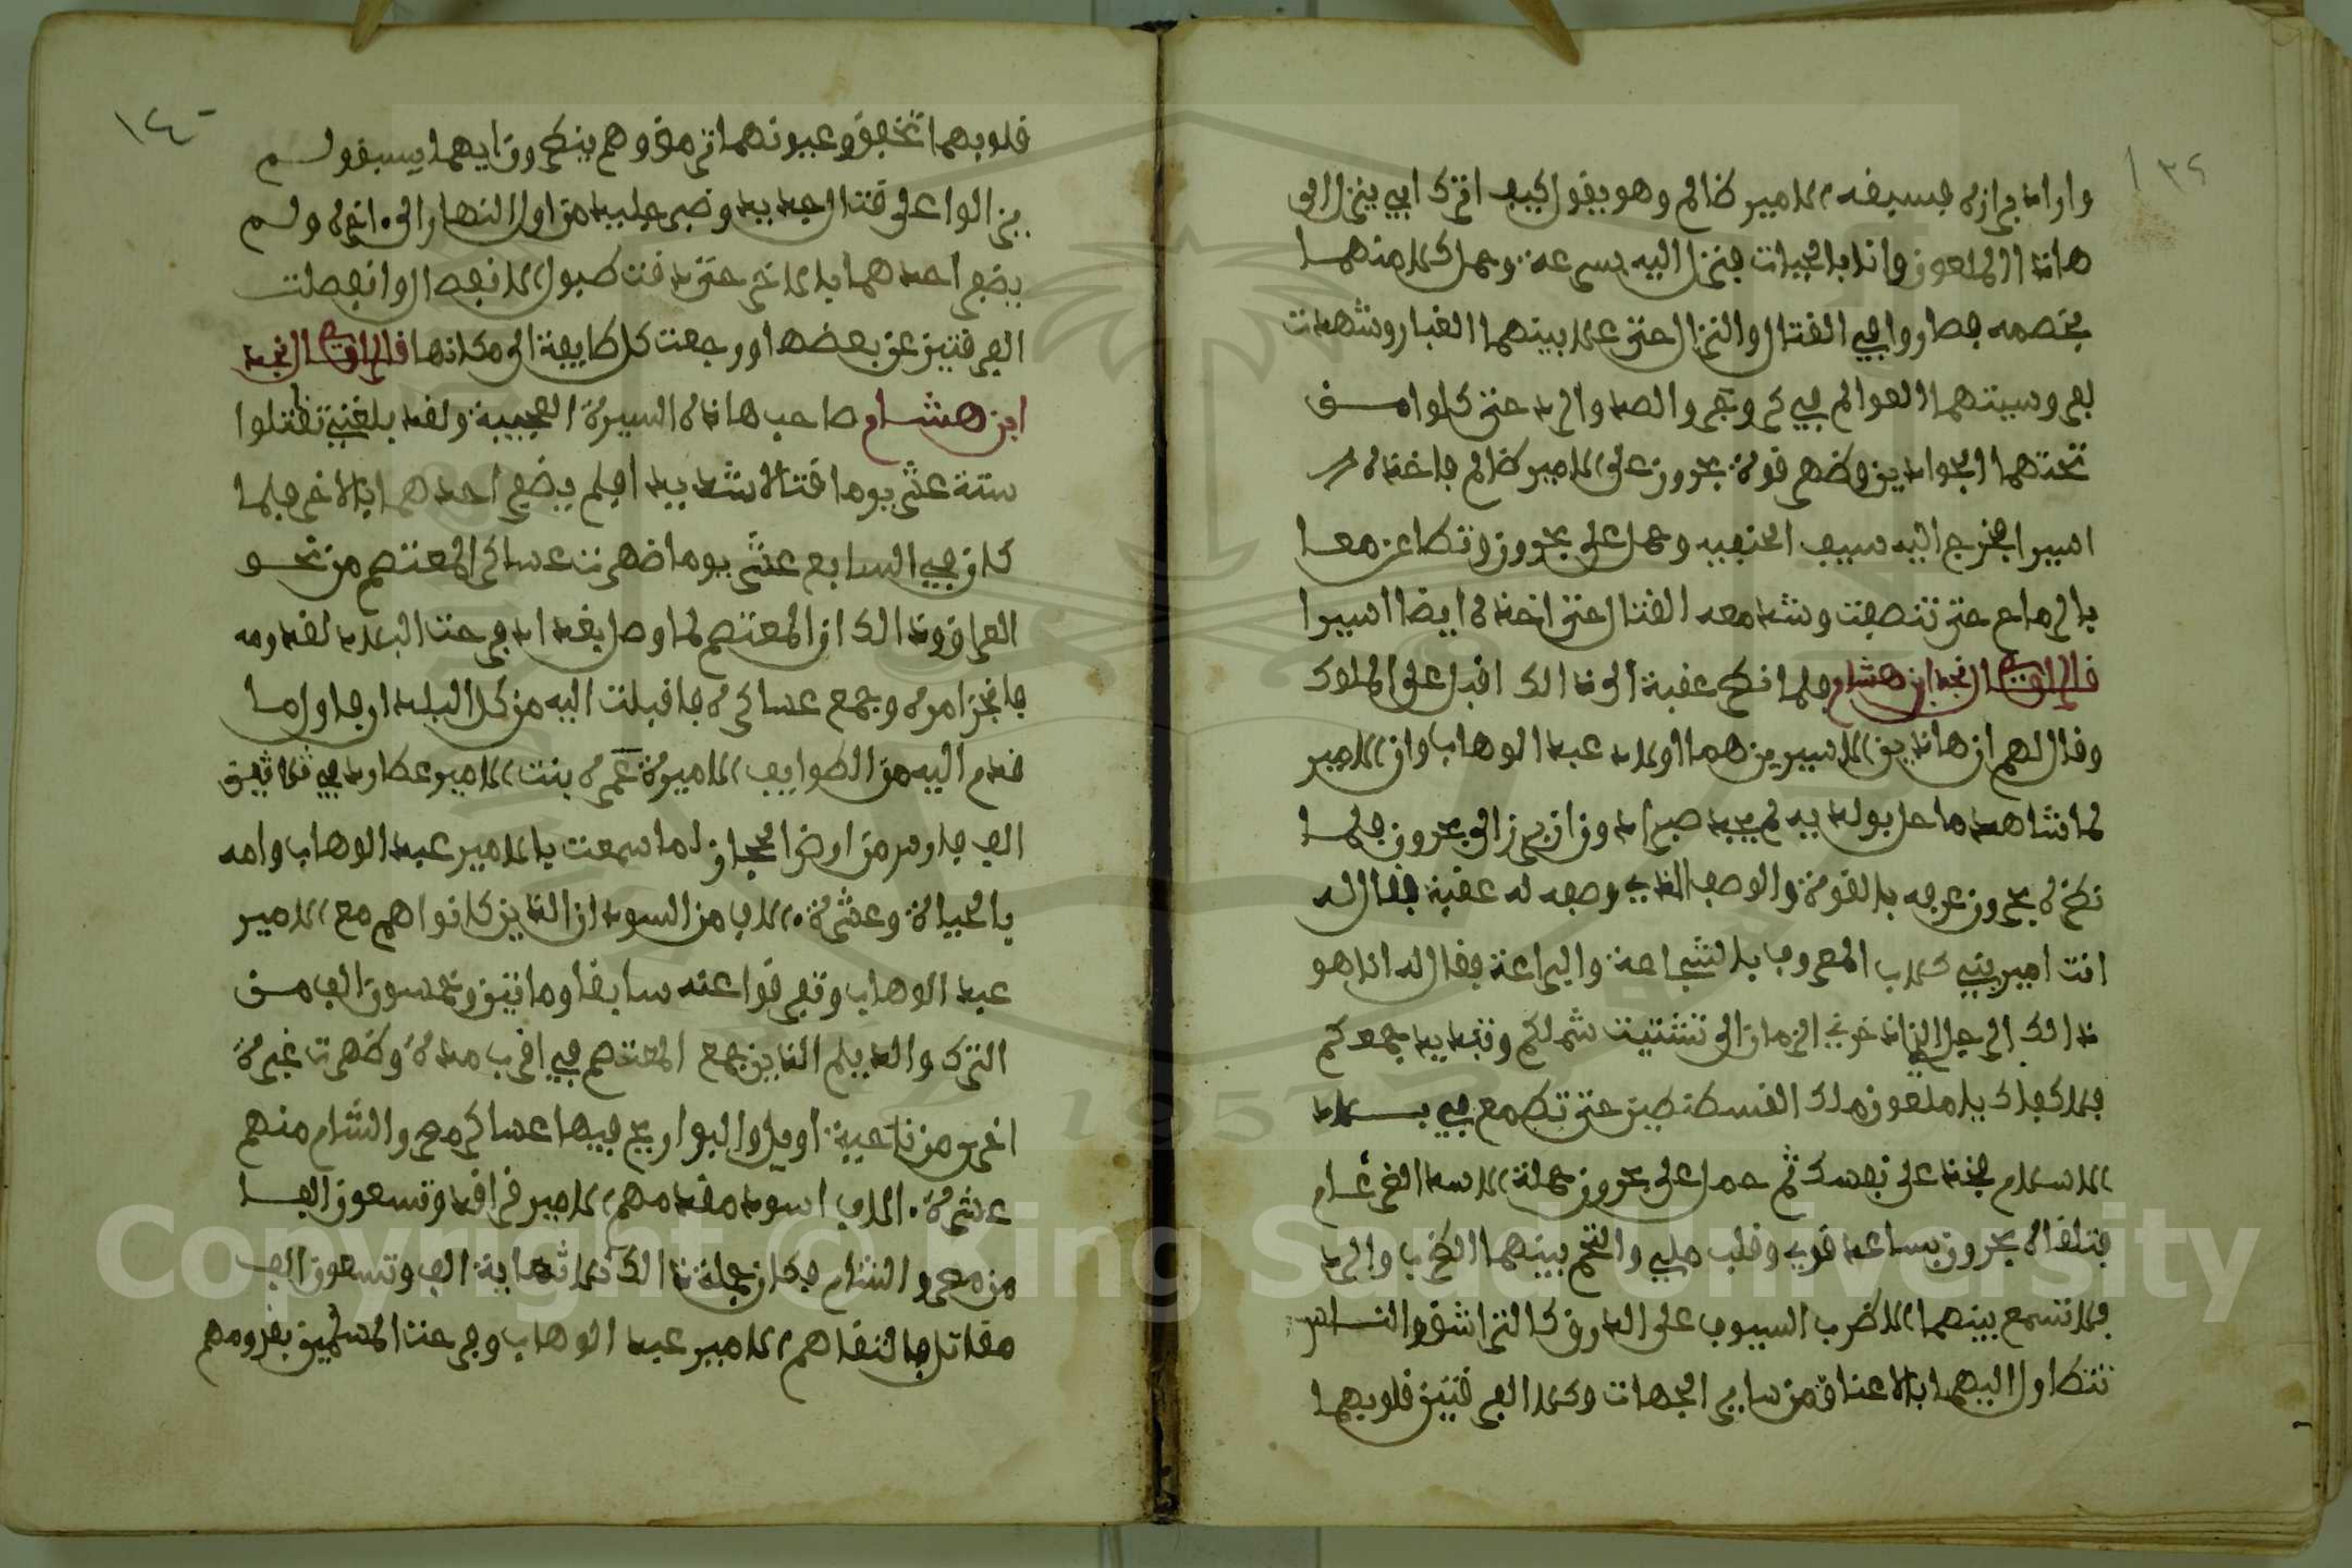 ١٣٩
واراد برازه فسبقه الامير ظالم وهو يقول كيف اترك ابي ينزل الى
هاذا الملعون وانا بالحيات فنزل اليه بسرعة وحمل كلا منهما
بخصمه فصاروا في القتال والنزال حتى علا بينهما الغبار وشهدت
بفروسيتهما العوالم في كر وفر والصد والرد حتى كلوا من
تحتهما الجوادين وظهر قوة بحرون على الامير ظالم فاخذه
اسيرا فخرج اليه سيف الحنفيه وحمل على بحرون وتطاعن معا
بالرماح حتى تنصفت وشد معه القتال حتى اخذه ايضا اسيرا
قال الراوي النجد ابن هشام فلما نظر عقبة الى ذالك اقبل على الملوك
وقال لهم ان هاذين الاسيرين هما اولاد عبد الوهاب وان الامير
لما شاهد ما حل بولديه لم يجد صبرا دون ان برز الى بحرون فلما
نظره بحرون عرفه بالقوة والوصف الذي وصفه له عقبة فقال له
انت امير بني كلاب المعروف بالشجاعة والبراعة فقال له انا هو
ذالك الرجل الذي اخرني الزمان الى تشتيت شملكم وتبديد جمعكم
فما كفاك يا ملعون ملك القسطنطين حتى تطمع في بلاد
الاسلام فخذ على نفسك ثم حمل على بحرون حملة الاسد الضرغام
فتلقاه بحرون بساعد قوي وقلب ملي والتحم بينهما الضرب والرد
فما تسمع بينهما الا ضرب السيوف على الدروق كالتراشق والناس
تتطاول اليهما بالاعناق من ساير الجهات وكلا الفرقتين قلوبهما
١٤٠
قلوبهما تخفق وعيونهما ترمق وهم ينظرون ايهما يسبق ولم
يزالوا على قتال جديد وضرب جليد من اول النهار الى اخره ولم
يضفر احدهما بالاخر حتى دقت طبول الانفصال وانفصلت
الفرقتين عن بعضها ورجعت كل طايفة الى مكانها قال الراوي النجد
ابن هشام صاحب هاذه السيرة العجيبة ولقد بلغني تقتلوا
ستة عشر يوما قتالا شديدا فلم يضفر احدهما بالاخر فلما
كان في السابع عشر يوما ظهرت عساكر المعتصم من نحو
العراق وذالك ان المعتصم لما وصل بغداد فرحت البلاد لقدومه
فانجز امره وجمع عساكره فاقبلت اليه من كل البلد ارجا واما
قدم اليه من الطوايف الاميرة عمرة بنت الامير عطارد في ثلاثين
الف فارس من ارض الحجاز لما سمعت يا الامير عبد الوهاب وامه
بالحياة وعشرة الاف من السودان الذين كانوا هم مع الامير
عبد الوهاب وتفرقوا عنه سابقا ومائتين وخمسون الف من
الترك والديلم الذين جمع المعتصم في اقرب مدة وظهرت غبرة
اخرى من ناحية اوميل والبواريج فيها عساكر مصر والشام منهم
عشرة الاف اسود مقدمهم الامير قراقد وتسعون الفا
من مصر والشام فكان جملة ذالك ثلاثماية الف وتسعون الف
مقاتل فالتقاهم الامير عبد الوهاب وفرحت المسلمين بقدومهم
Copyright © King Saud University
1957